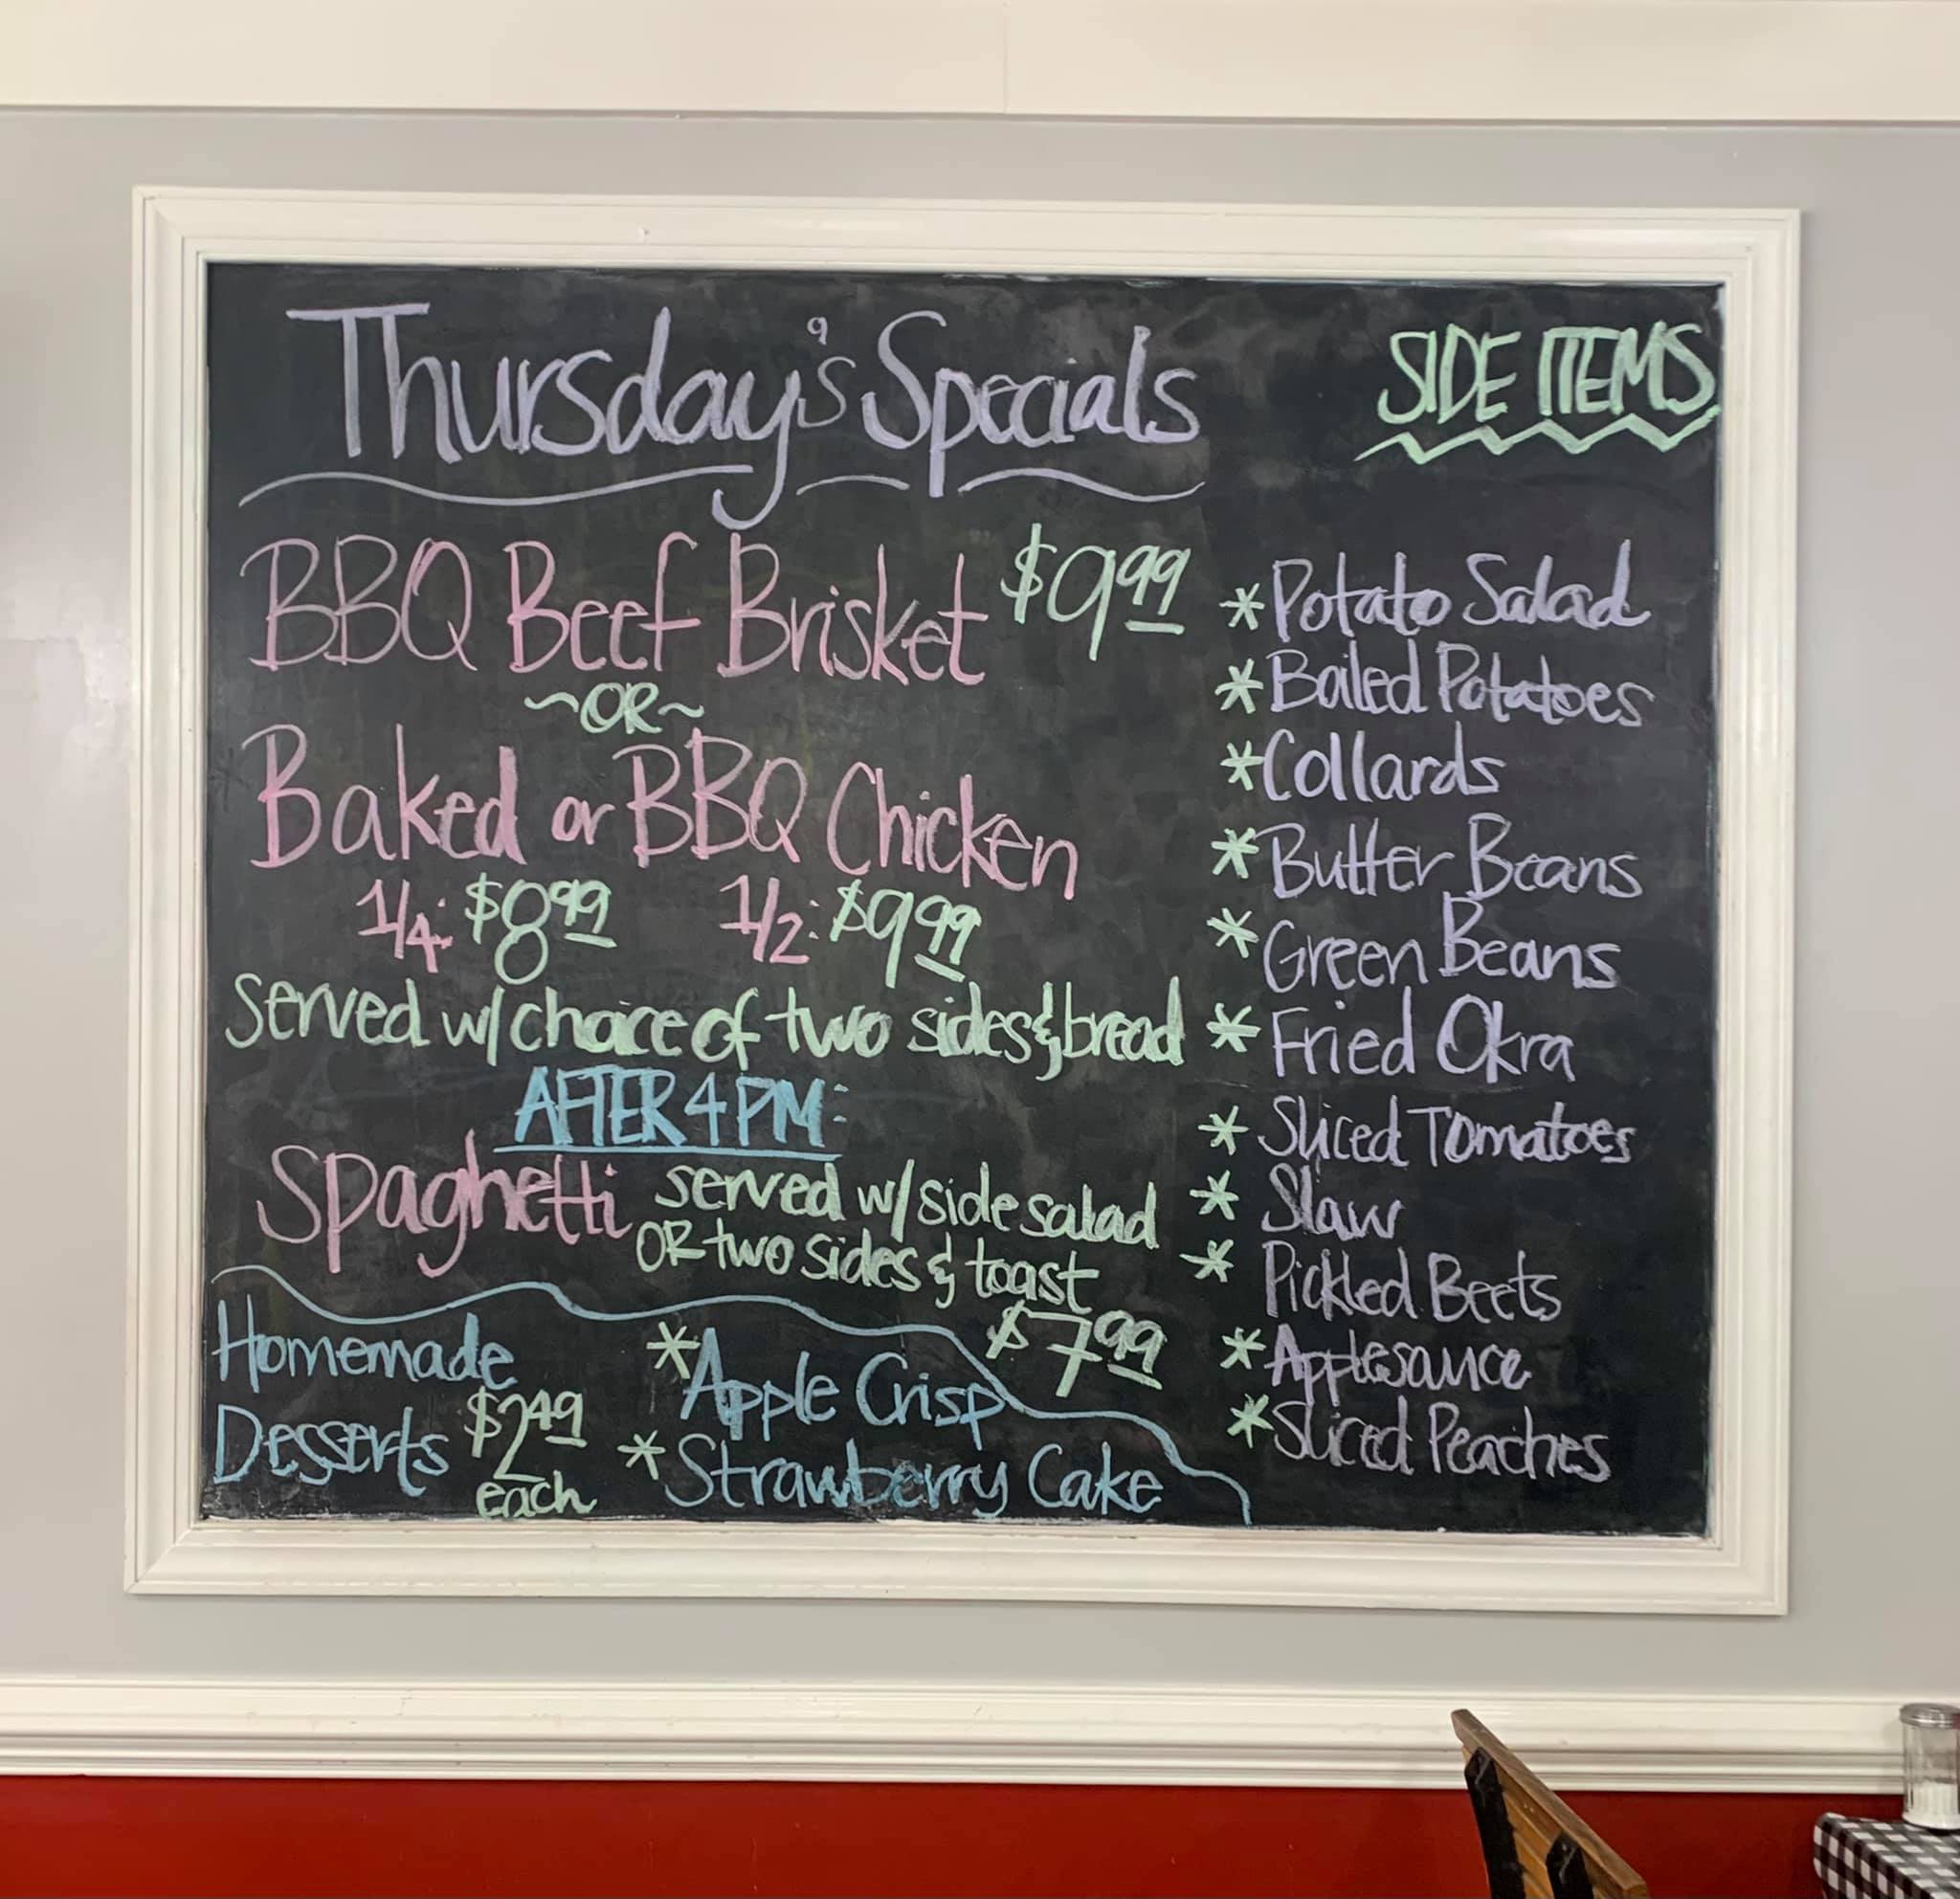 Thursday's Specials
BBQ Beef Brisket $9.99
~OR~
Baked or BBQ Chicken
1/4: $8.99 1/2: $9.99
served w/ choice of two sides & bread
AFTER 4 PM:
Spaghetti served w/ side salad
OR two sides & toast
$7.99
Homemade
Desserts $2.49
each
* Apple Crisp
* Strawberry Cake
SIDE ITEMS
* Potato Salad
* Boiled Potatoes
* Collards
* Butter Beans
* Green Beans
* Fried Okra
* Sliced Tomatoes
* Slaw
* Pickled Beets
* Applesauce
* Sliced Peaches